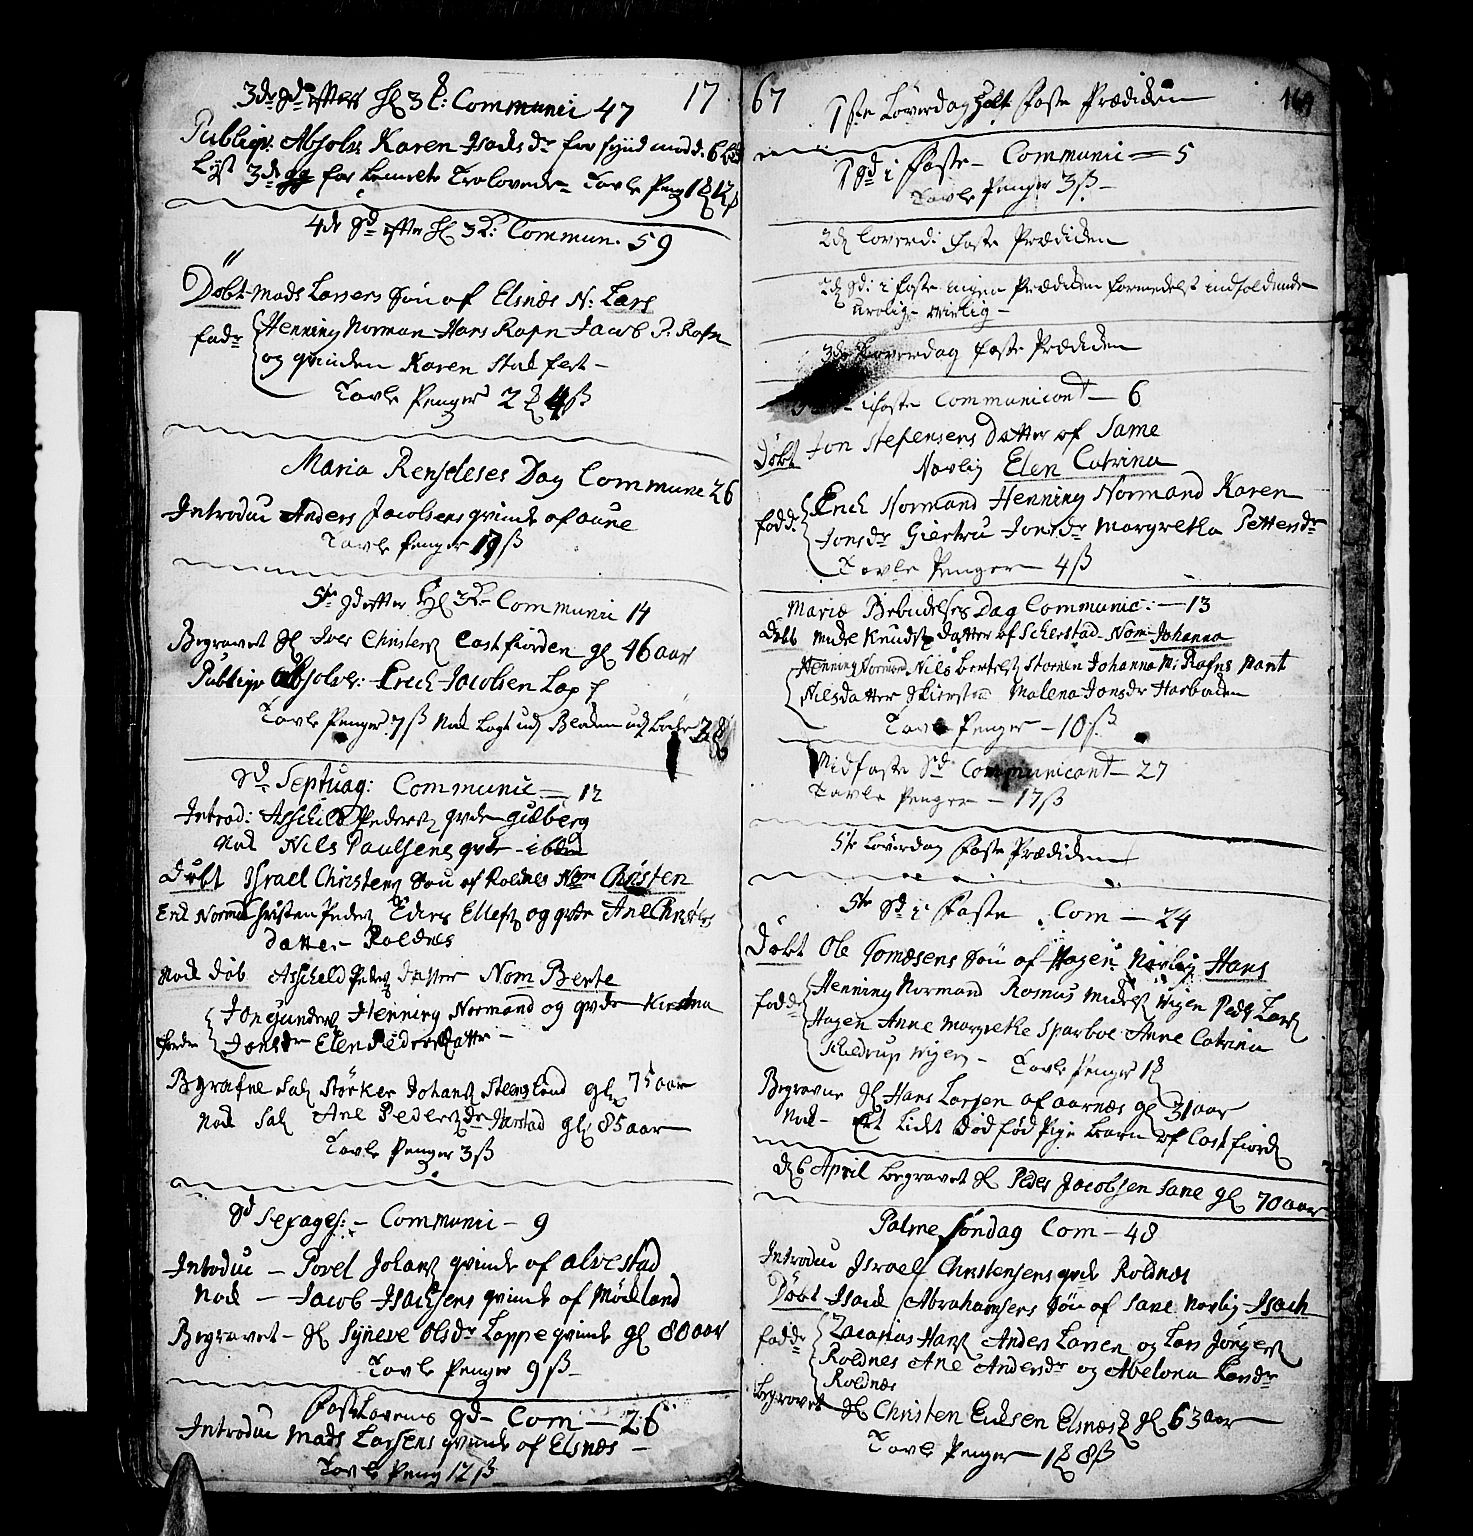 3de Sd. efter H 3 K: Communici 47 17
Publiqv. Absolv: Karen Isachsdr for synd mod d. 6 bud
Lyst 3de gg for bemelte Trolovede Tavle Peng 1 12 ß
4de Sd efter H 3 K: Commun. 59
Døbt Mads Larsens Søn af Elsnæs N: Lars
fadr Henning Norman Hans Rafn Jacob P. Rafn
og qvinden Karen Stadfest
Tavle Penger 2 4 ß
Maria Renselses Dag Commune 26
Introduc Anders Jacobsens qvinde af aune
Tavle Penger 19 ß
5te Sd efter H 3 K Communic 14
Begravet Sl Iver Christens Castfiorden gl 46 aar
Publiqv Absolv: Erich Jacobsen Lap
Tavle Penger 7 ß Nok Lagt udj
Sd. Septuag: Communic. 12
Introd: Asschild Peders qvde gilberg
Nok Nils Paulsens qvde
Døbt Israel Christens Søn af Roldnes Nom Christen
Erik Normand Christen Peders Eders Ellefs og qvde Ane Christens
datter Roldnes
Nock Døb Ascheld Peders Datter Nom Berte
Jon Gunders Henning Normand og qvde Kirstina
fadde Jonsdr Elen Peders datter
Begrafne Sal Størker Johans Steensland gl 75 aar
Nok Sal Ane Pedersdr Harstad gl 85 aar
Tavle Penger 3 ß
Sd Sexages: Communic 9
Introduc Povel Johans qvinde af alvestad
Nok Jacob Isachsens qvinde af Møckland
Begravet Sl Syneve Olsdr Lappeqvinde gl 80 aar
Tavle Penger 9 ß
Fastelavens Sd Com 26
Introduc Mads Larsens qvinde af Elsnæs
Tavle Peng 12 ß
67 1ste Løverdag holt Faste Prædicken 169
1 Sd i Faste Communic 5
Tavle Penger 3 ß
2den Løverd: Faste Prædicken
2den Sd: i Faste ingen Prædicken formedelst indfoldende
urolig veirlig
3de Løverdag Faste Prædicken
i Faste Communicant 6
Døbt Jon Stefensens datter af Same
Navlig Elen Catrina
fadd. Erich Normand Henning Normand Karen
Jonsdr Giertru Jonsdr Margretha Pettersdr
Tavle Penger 4 ß
Mariæ Bebudelses Dag Communic: 13
Døbt Mide Knuds datter af Scherstad Nom Johanna
Henning Normand Nils Bertels Stornes Johanna M: Rafns Marit
Nilsdatter Skierstad Malena Jonsdr Harbaden
Tavle Penger 10 ß
Midfaste Sd Communicant 27
Tavle Penger 17 ß
5te Løverdag Faste Prædicken
5te Sd i Faste Com 24
Døbt Ole Tomæsens Søn af Hagen Navlig Hans
fadde Henning Normand Rasmus Wigen Peder Lars
Hagen Anne Margrethe Sparboe Anne Catrina
Kuldrup Wigen Tavle Penger 1
Begravne Sl Hans Larsen af aarnæs gl 31 aar
Nok Ett Lidet Dødfød Pige Barn af Castfiord
d 6 April begravet Sl Peder Jacobsen Sane gl 70 aar
Palme Søndag Com 48
Introduc Israel Christensens qvde Roldnæs
Døbt Isach Abrahamsens Søn af Sane Navlig Isach
fadde Zacarias Hans Anders Larsen og Lars Jørgens
Roldnes Ane Andersdr og Abelona
Roldnæs
Begravet Sl Christen Ericksen Elsnæs gl 63 aar
Tavle Penger 1 8 ß